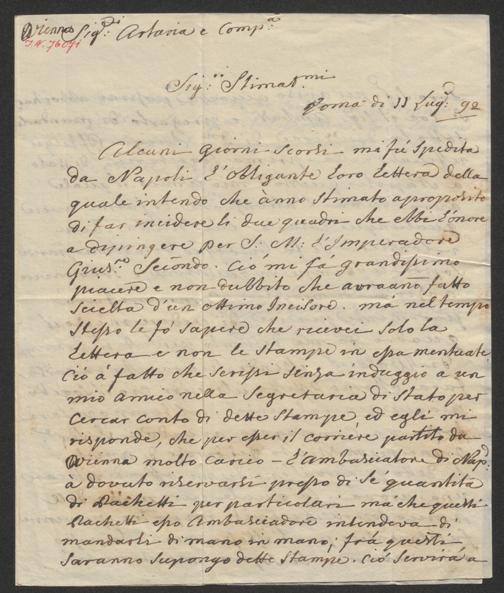 Vienna Sig.ri Artaria e Comp.a
I.N. 76091
Sig.ri Stimat.mi
Roma di 11 Lug.o 92
Alcuni giorni scorsi mi fù spedita
da Napoli l'obligante loro lettera della
quale intendo che anno stimato a proposito
di far incidere li due quadri che ebbi l'onore
a dipingere per S: M: l'Imperadore
Gius.e Secondo. Ciò mi fà grandissimo
piacere e non dubbito che avraano fatto
scielta d'un ottimo Incisore. mà nel tempo
stesso le fò sapere che recevei solo la
lettera e non le stampe in essa mentuate
Ciò à fatto che scrissi senza induggio a un
mio amico nella Segretaria di Stato per
cercar conto di dette Stampe, ed egli mi
risponde, che per esser il corriere partito da
Vienna molto carico - l'ambasciatore di Nap.
à dovuto riservarsi presso di se quantita
di Pachetti per particolari mà che questi
Pachetti esso Ambasciadore intendeva di
mandarli di mano in mano; frà questi
saranno supongo dette Stampe. Ciò servirà a